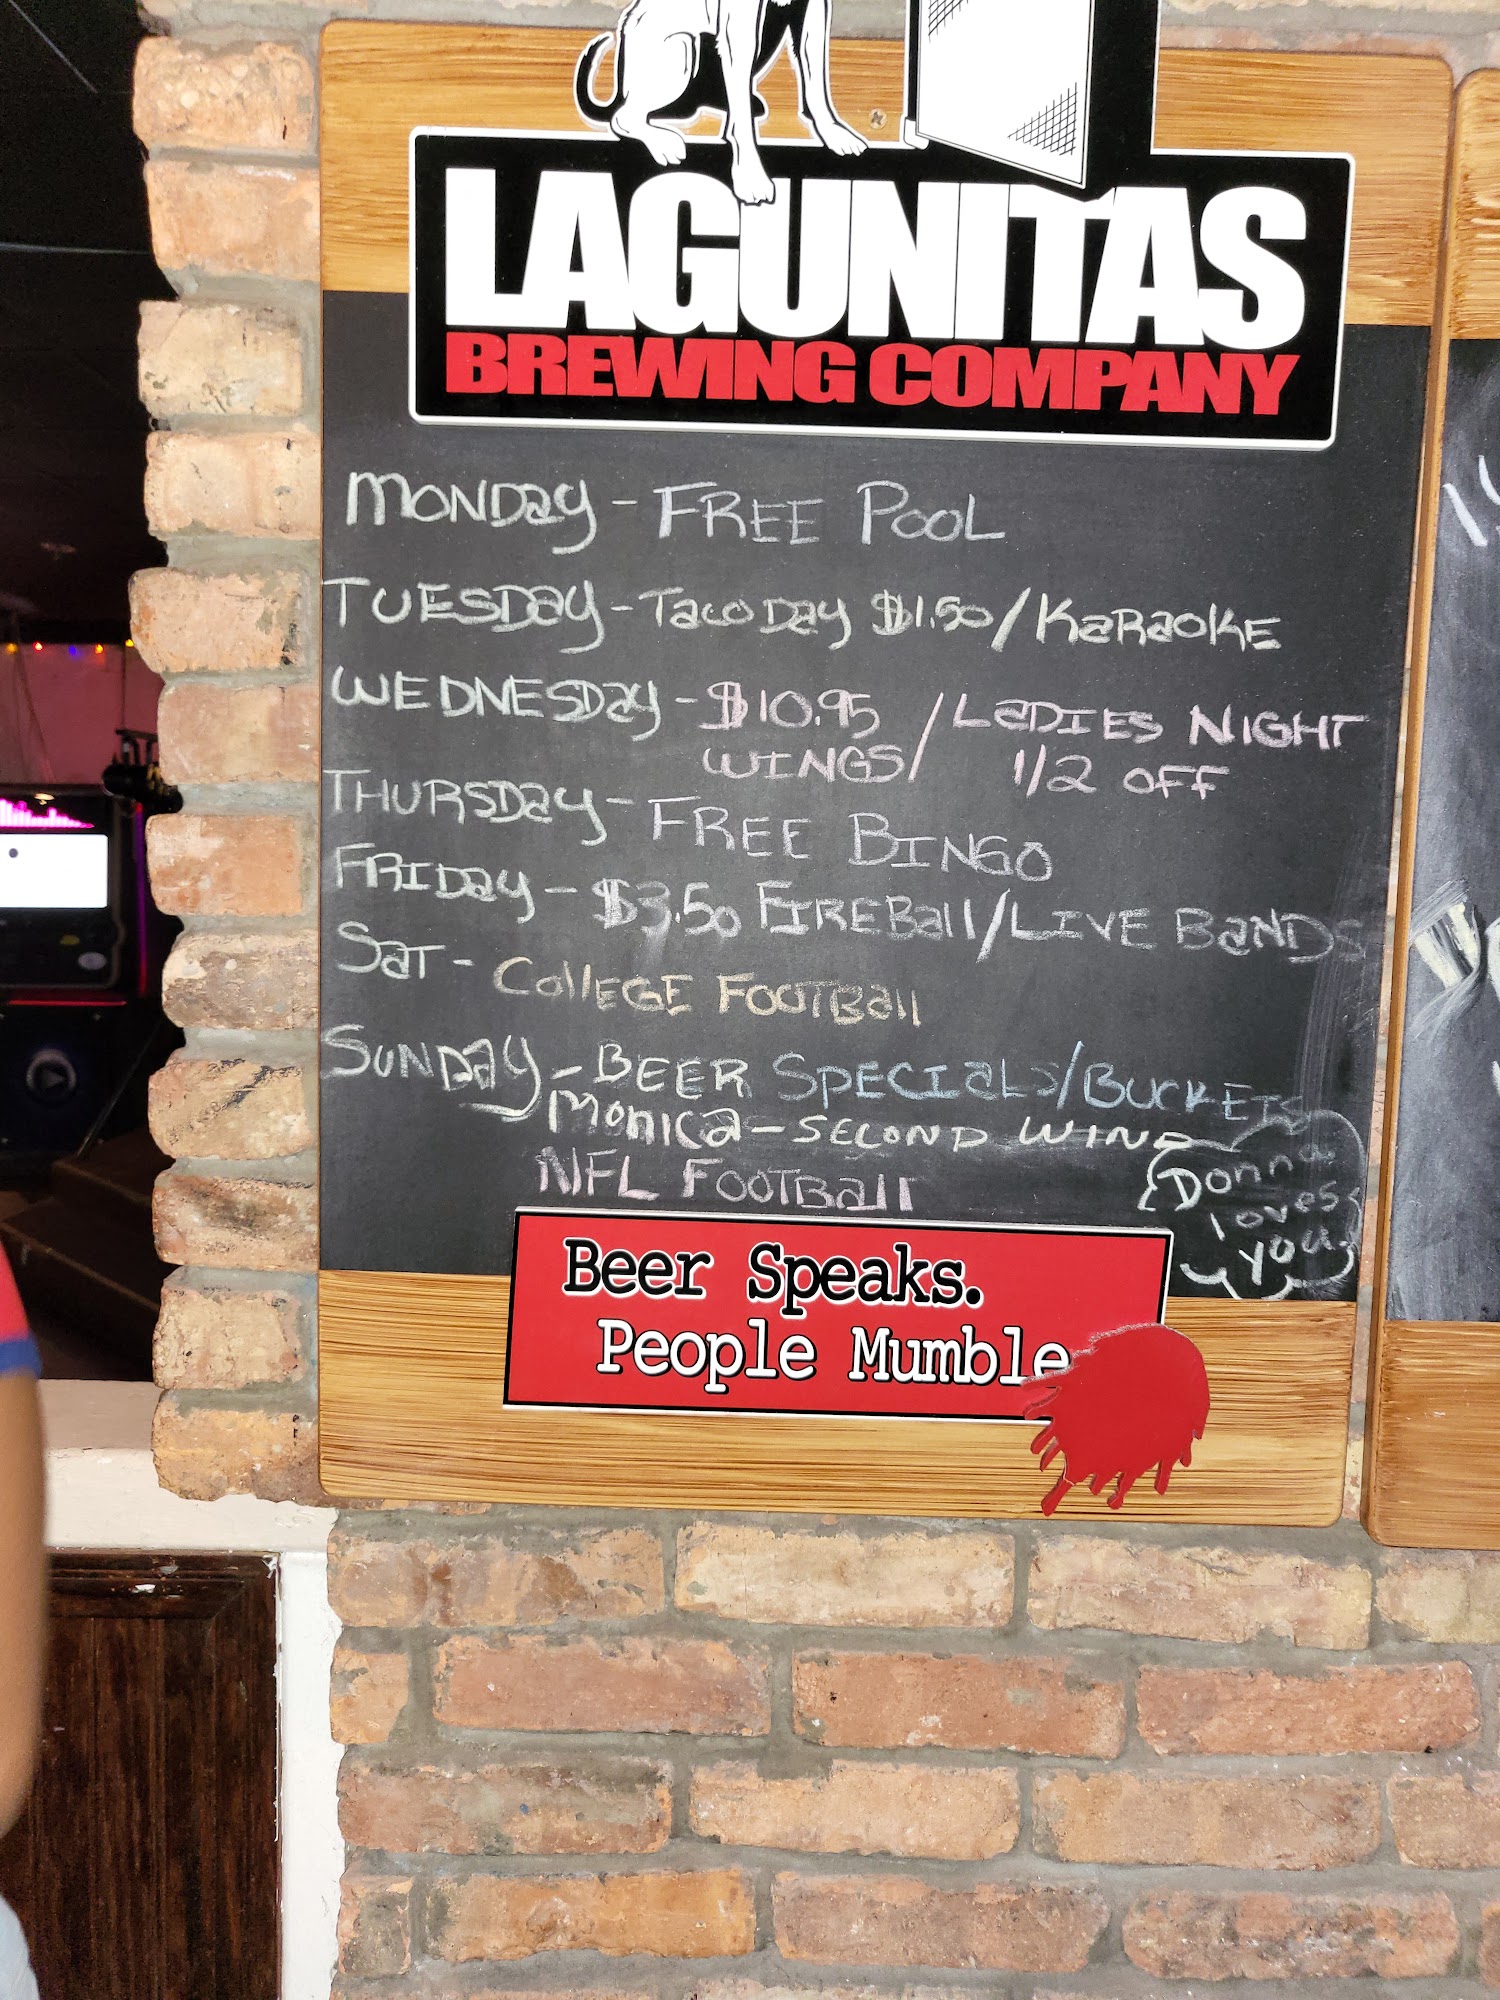 LAGUNITAS
BREWING COMPANY
MONDay - FREE POOL
TUESDay - Taco Day $1.50/KaRaOKE
WEDNESDay - $10.95 / LaDIES NIGHT
WINGS/ 1/2 OFF
THURSDay - FREE BINGO
FRIDay - $3.50 FIREBall/LIVE BaNDS
SaT - CollEGE FOOTBall
SUNDay - BEER SPECIaLS/BUCKETS
Monica - SECOND WIND
NFL FOOTBall
Donna
loves
you
Beer Speaks.
People Mumble